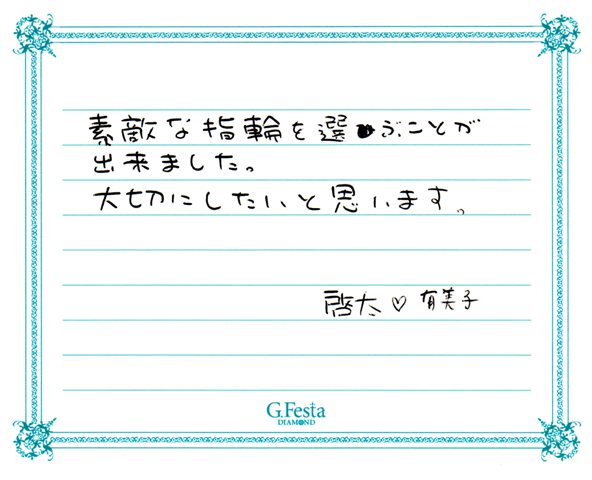 素敵な指輪を選ぶことが
出来ました。
大切にしたいと思います。
啓太♡有美子
G.Festa
DIAMOND